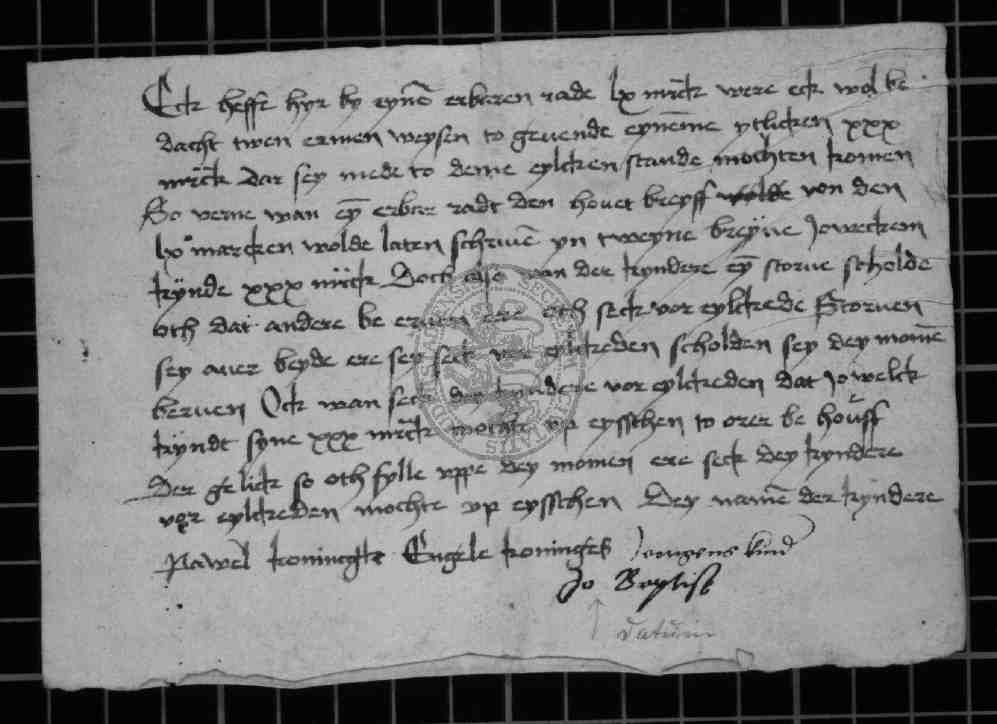 Eck hefft hyr by eynē erbaren rade lx mrck were eck wol be
dacht twen ermen weysen to geuende eynēme ytlicken xxx
mrck dar sey mede to deme eylcken stande mochten komen
So verne wan eȳ erbar radt den houet breyff wolde von den
lx marcken wolde laten schriuē yn tweyne breyue Joweckem
kynde xxx mrck Doch also van der kyndere eȳ storue scholde
oth dat andere be eruen ere oth seck vor eylckede Storuen
sey auer beyde ere sey seck vor eylckeden scholden sey dey momē
beruen Ock wan seck dey kyndere vor eylckeden dat Jowelck
kyndt syne xxx mrck mochte vp eysschen to orer be houff
Der gelick so oth fylle vppe dey momen ere seck dey kyndere
vor eylckeden mochte vp eysschen Dey namē der kyndere
Pawel koninges Engele koninges Jrongens kind
Jo Baptist
datum